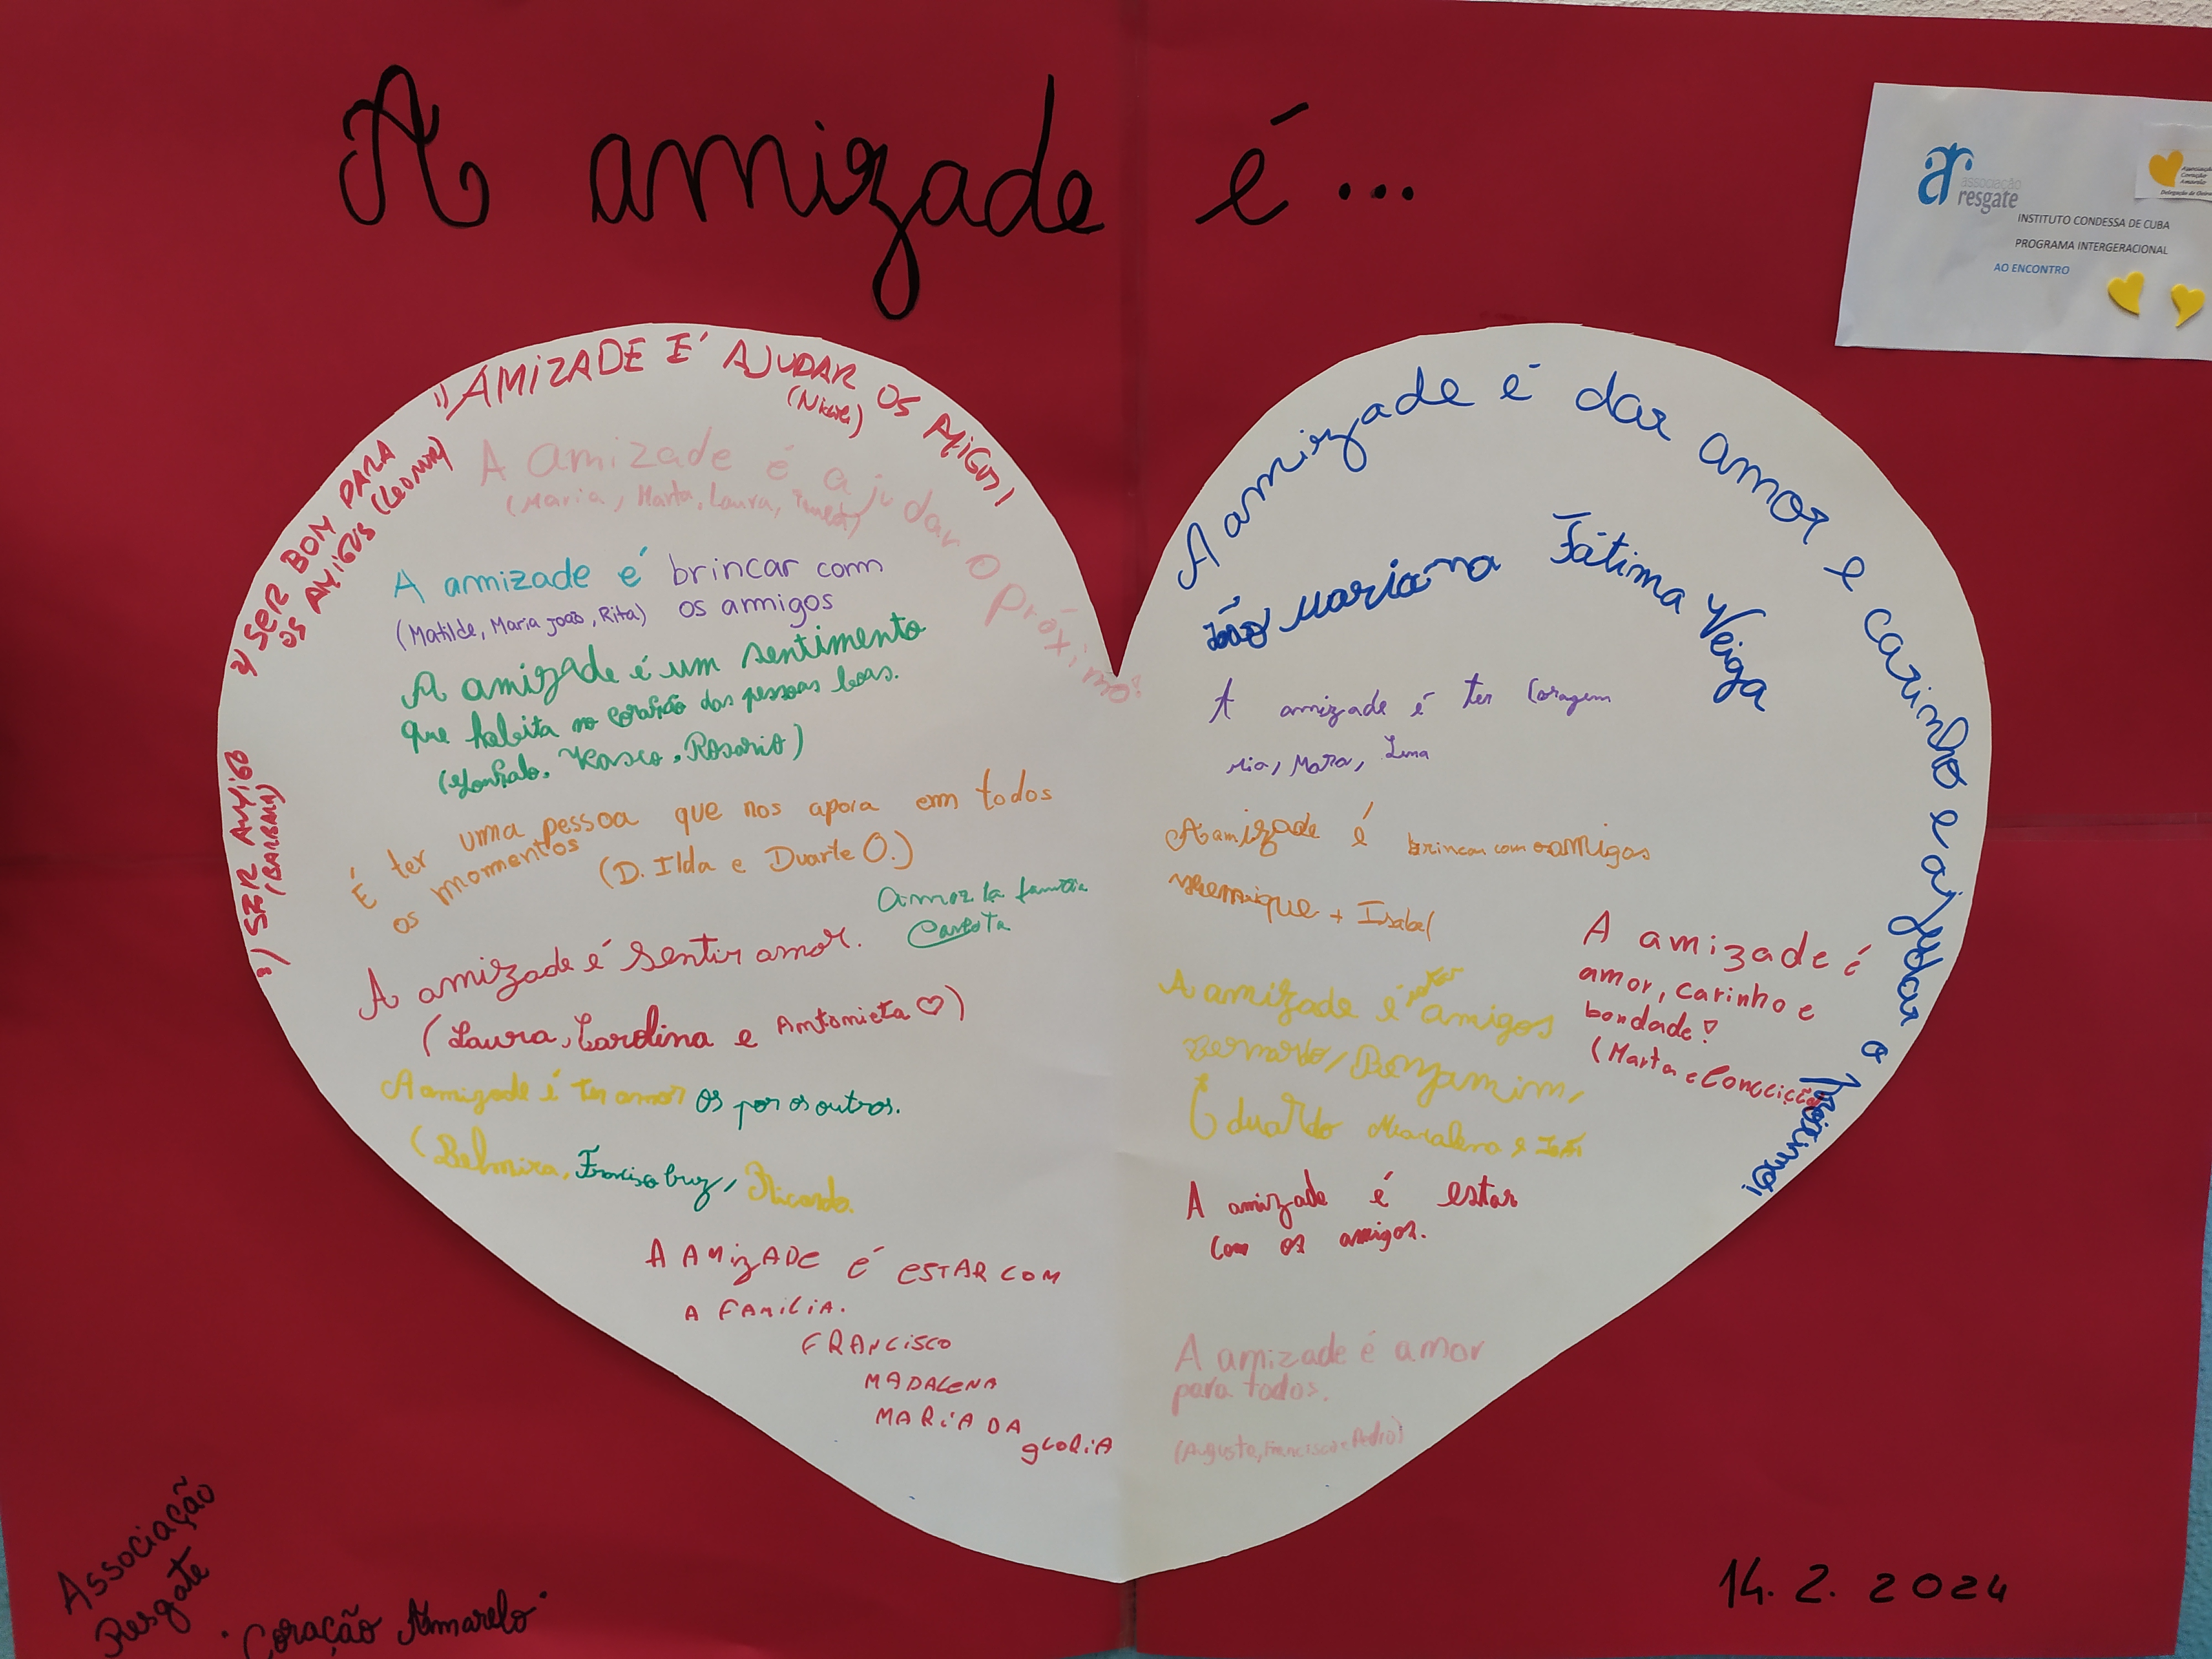 A amizade é...
associação
resgate
Associação
Coração
Amarelo
INSTITUTO CONDESSA DE CUBA
PROGRAMA INTERGERACIONAL
AO ENCONTRO
1) AMIZADE E' AJUDAR OS AMIGOS!
2) SER BOM PARA
OS AMIGOS (LEONOR)
3) SER AMIGO
A amizade é ajudar o próximo!
(Maria, Marta, Laura,
A amizade é brincar com
(Matilde, Maria João, Rita) os amigos
A amizade é um sentimento
que habita no coração das pessoas boas.
(Gonçalo, Vasco, Rosário)
É ter uma pessoa que nos apoia em todos
os momentos (D. Ilda e Duarte O.)
Amor à família
Carlota
A amizade é sentir amor.
(Laura, Carolina e Antonieta ♡)
A amizade é ter amor os por os outros.
(Belmira, Francisco Ricardo.
A AMIZADE É ESTAR COM
A FAMÍLIA.
FRANCISCO
MADALENA
MARIA DA
GLORIA
A amizade é dar amor e carinho e ajudar o próximo!
João Mariana Fátima Veiga
A amizade é ter coragem
Mia, Mara, Luna
A amizade é brincar com os amigos
Henrique + Isabel
A amizade é amigos
Bernardo, Benjamim,
Eduardo
A amizade é
amor, carinho e
bondade!
(Marta e Conceição)
A amizade é estar
com os amigos.
A amizade é amor
para todos.
(Augusta, Francisco e Pedro)
Associação
Resgate
"Coração Amarelo"
14. 2. 2024